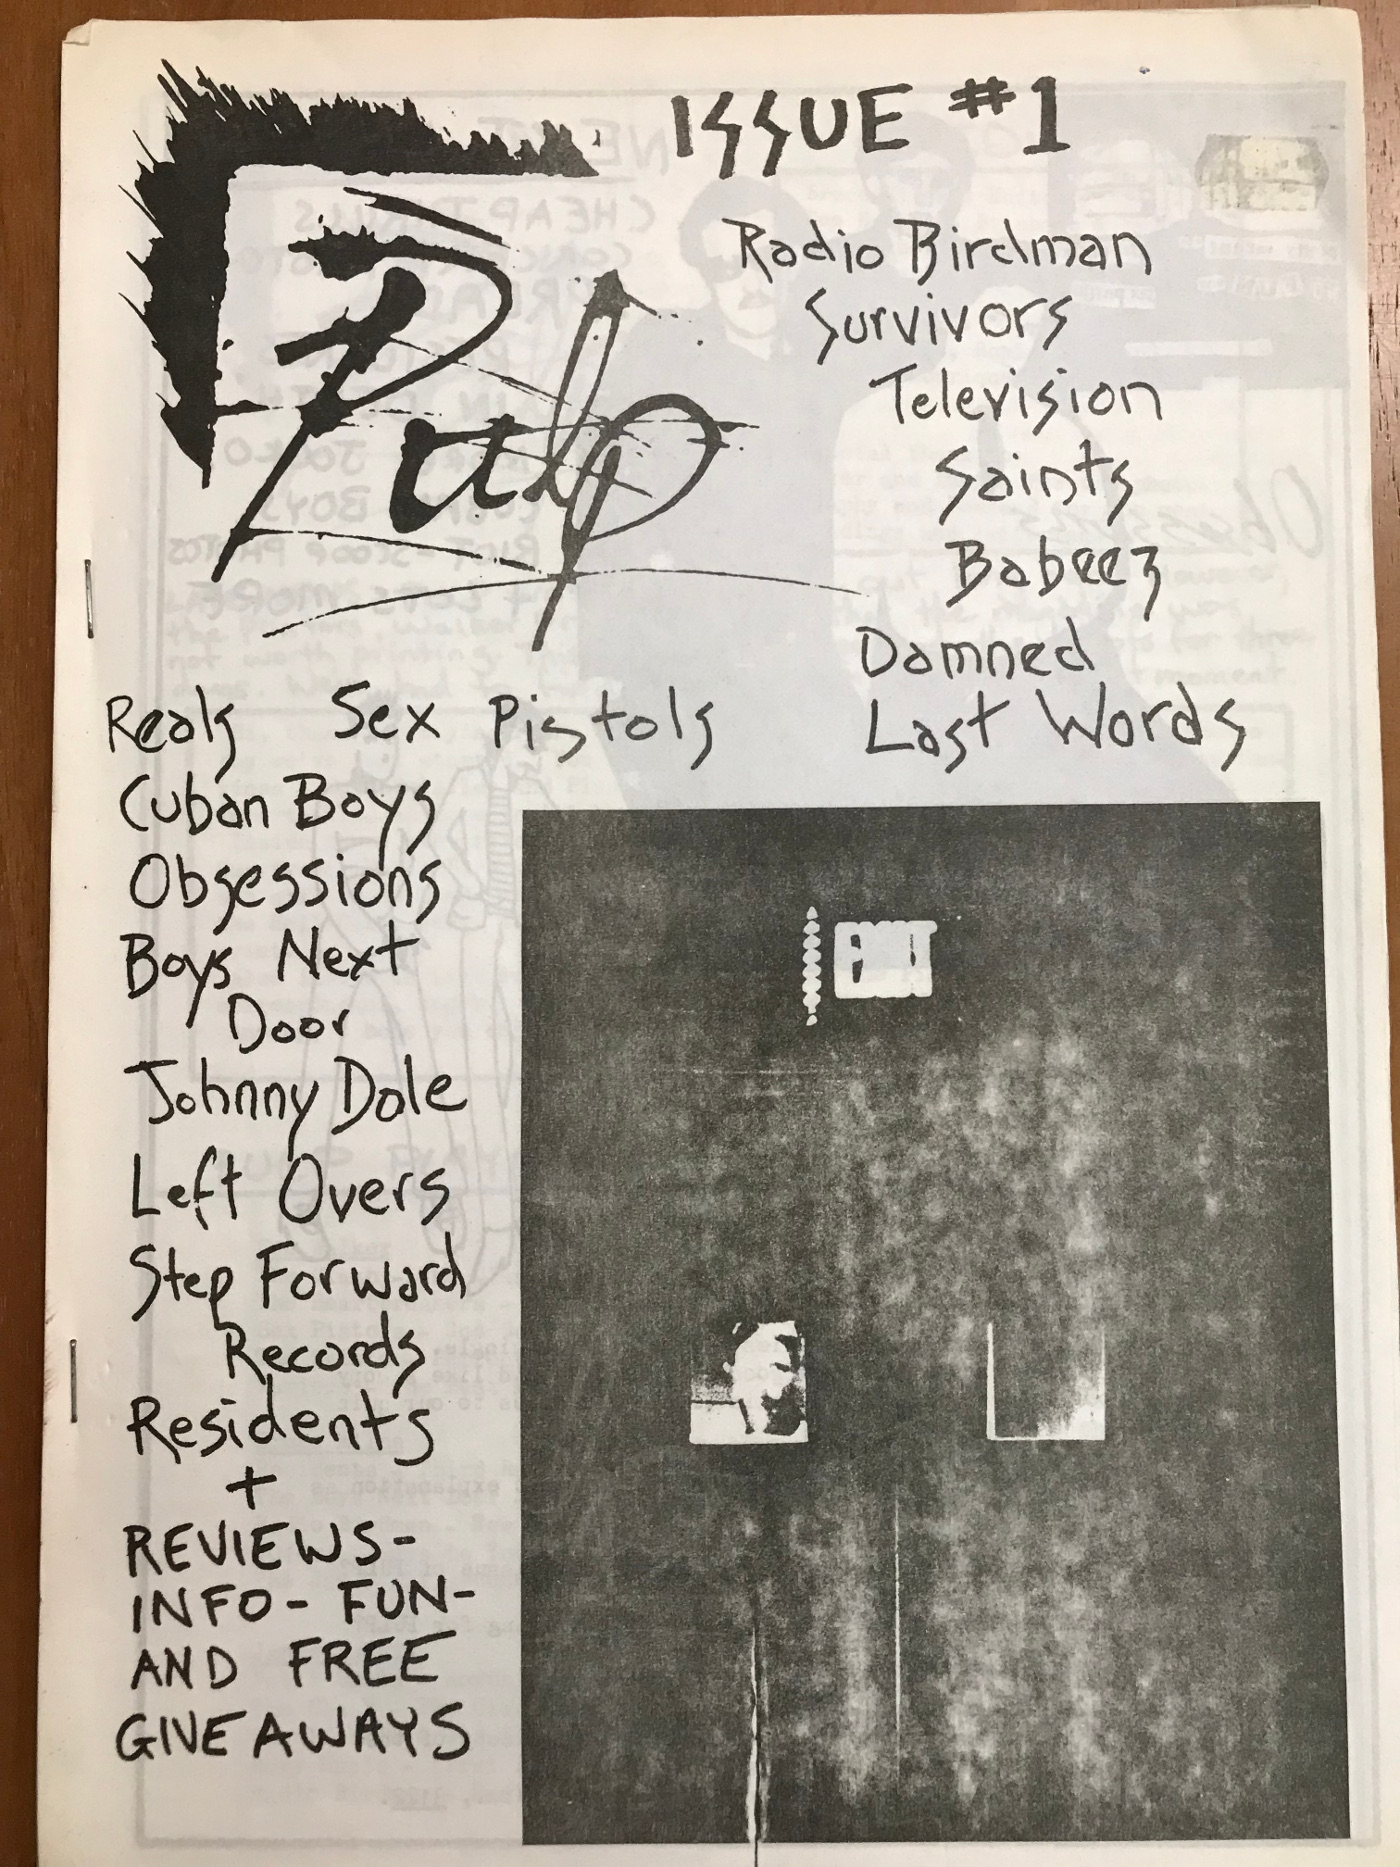 ISSUE #1
Pulp
Radio Birdman
Survivors
Television
Saints
Babeez
Damned
Last Words
Reals Sex Pistols
Cuban Boys
Obsessions
Boys Next
Door
Johnny Dole
Left Overs
Step Forward
Records
Residents
+
REVIEWS-
INFO- FUN-
AND FREE
GIVEAWAYS
EXIT